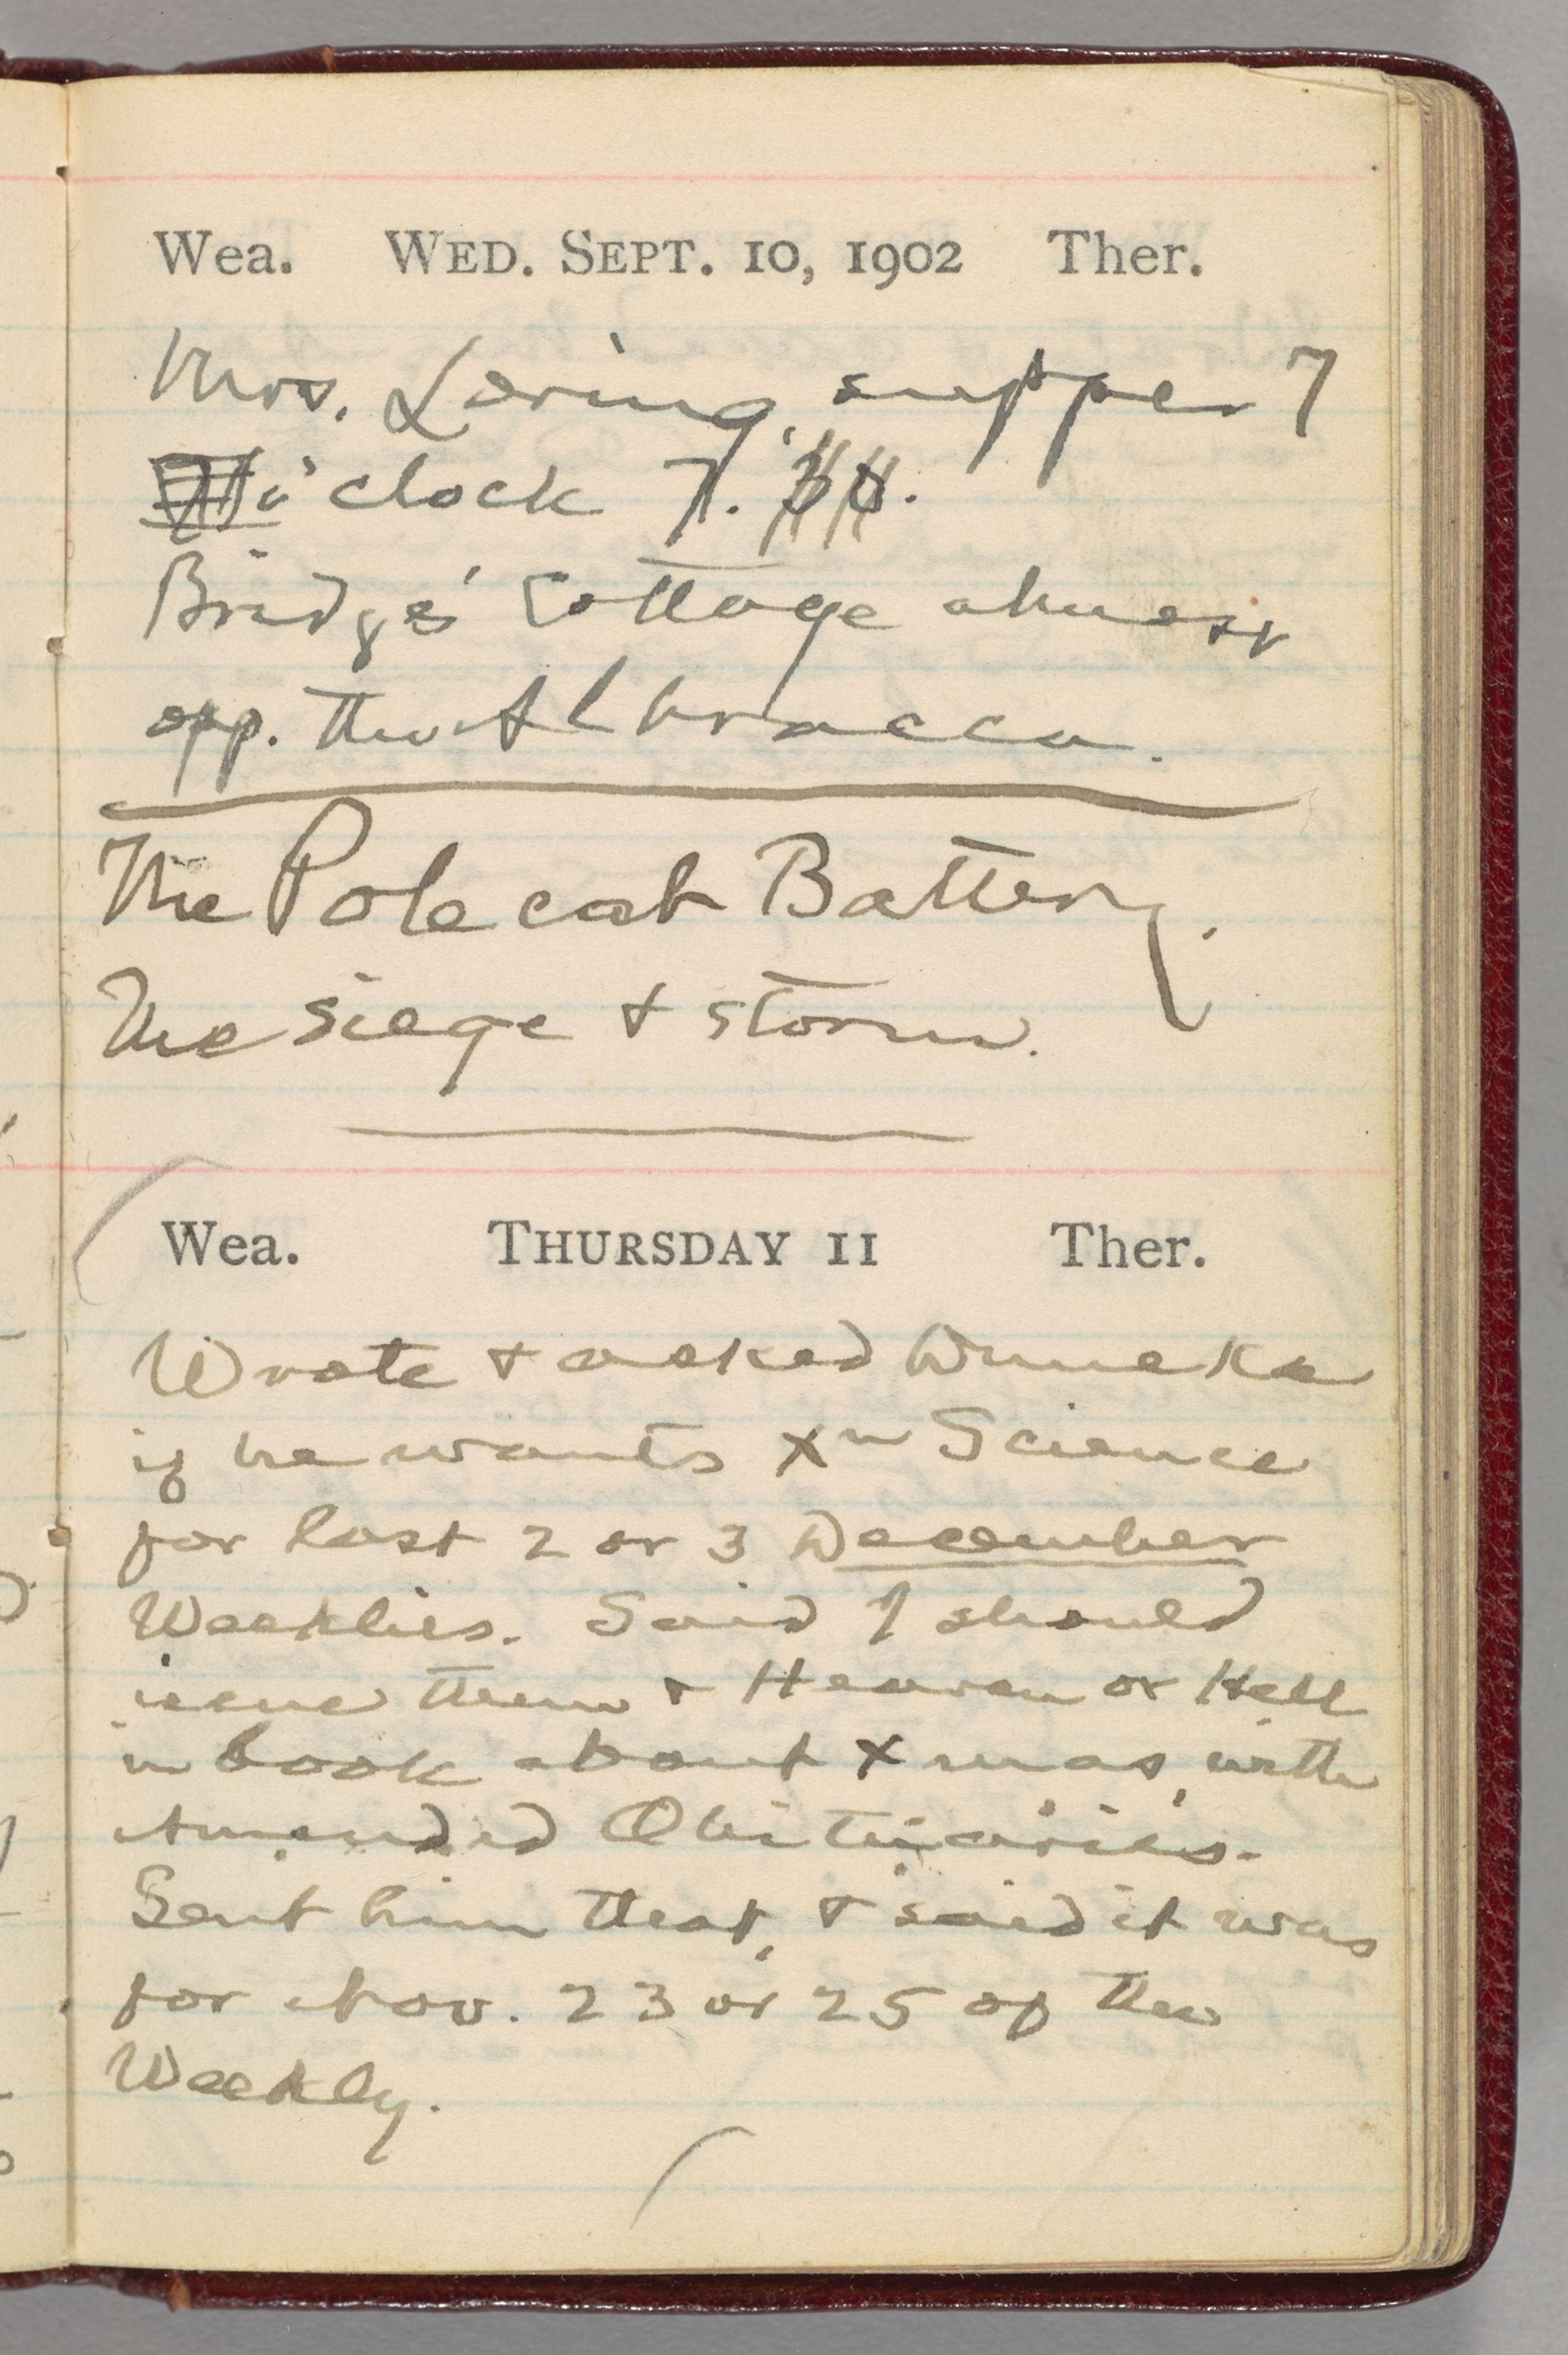 Wea. WED. SEPT. 10, 1902 Ther.
Mrs. Loring, supper 7
o'clock 7.
Bridges' Cottage almost
opp. the Albracca.
The Pole cat Battery.
The siege & storm.
Wea. THURSDAY 11 Ther.
Wrote & asked Duneka
if he wants Xn Science
for last 2 or 3 December
Weeklies. Said I should
issue them & Heaven or Hell
in book about Xmas, with
Amended Obituaries.
Sent him that, & said it was
for Nov. 23 or 25 of the
Weekly.